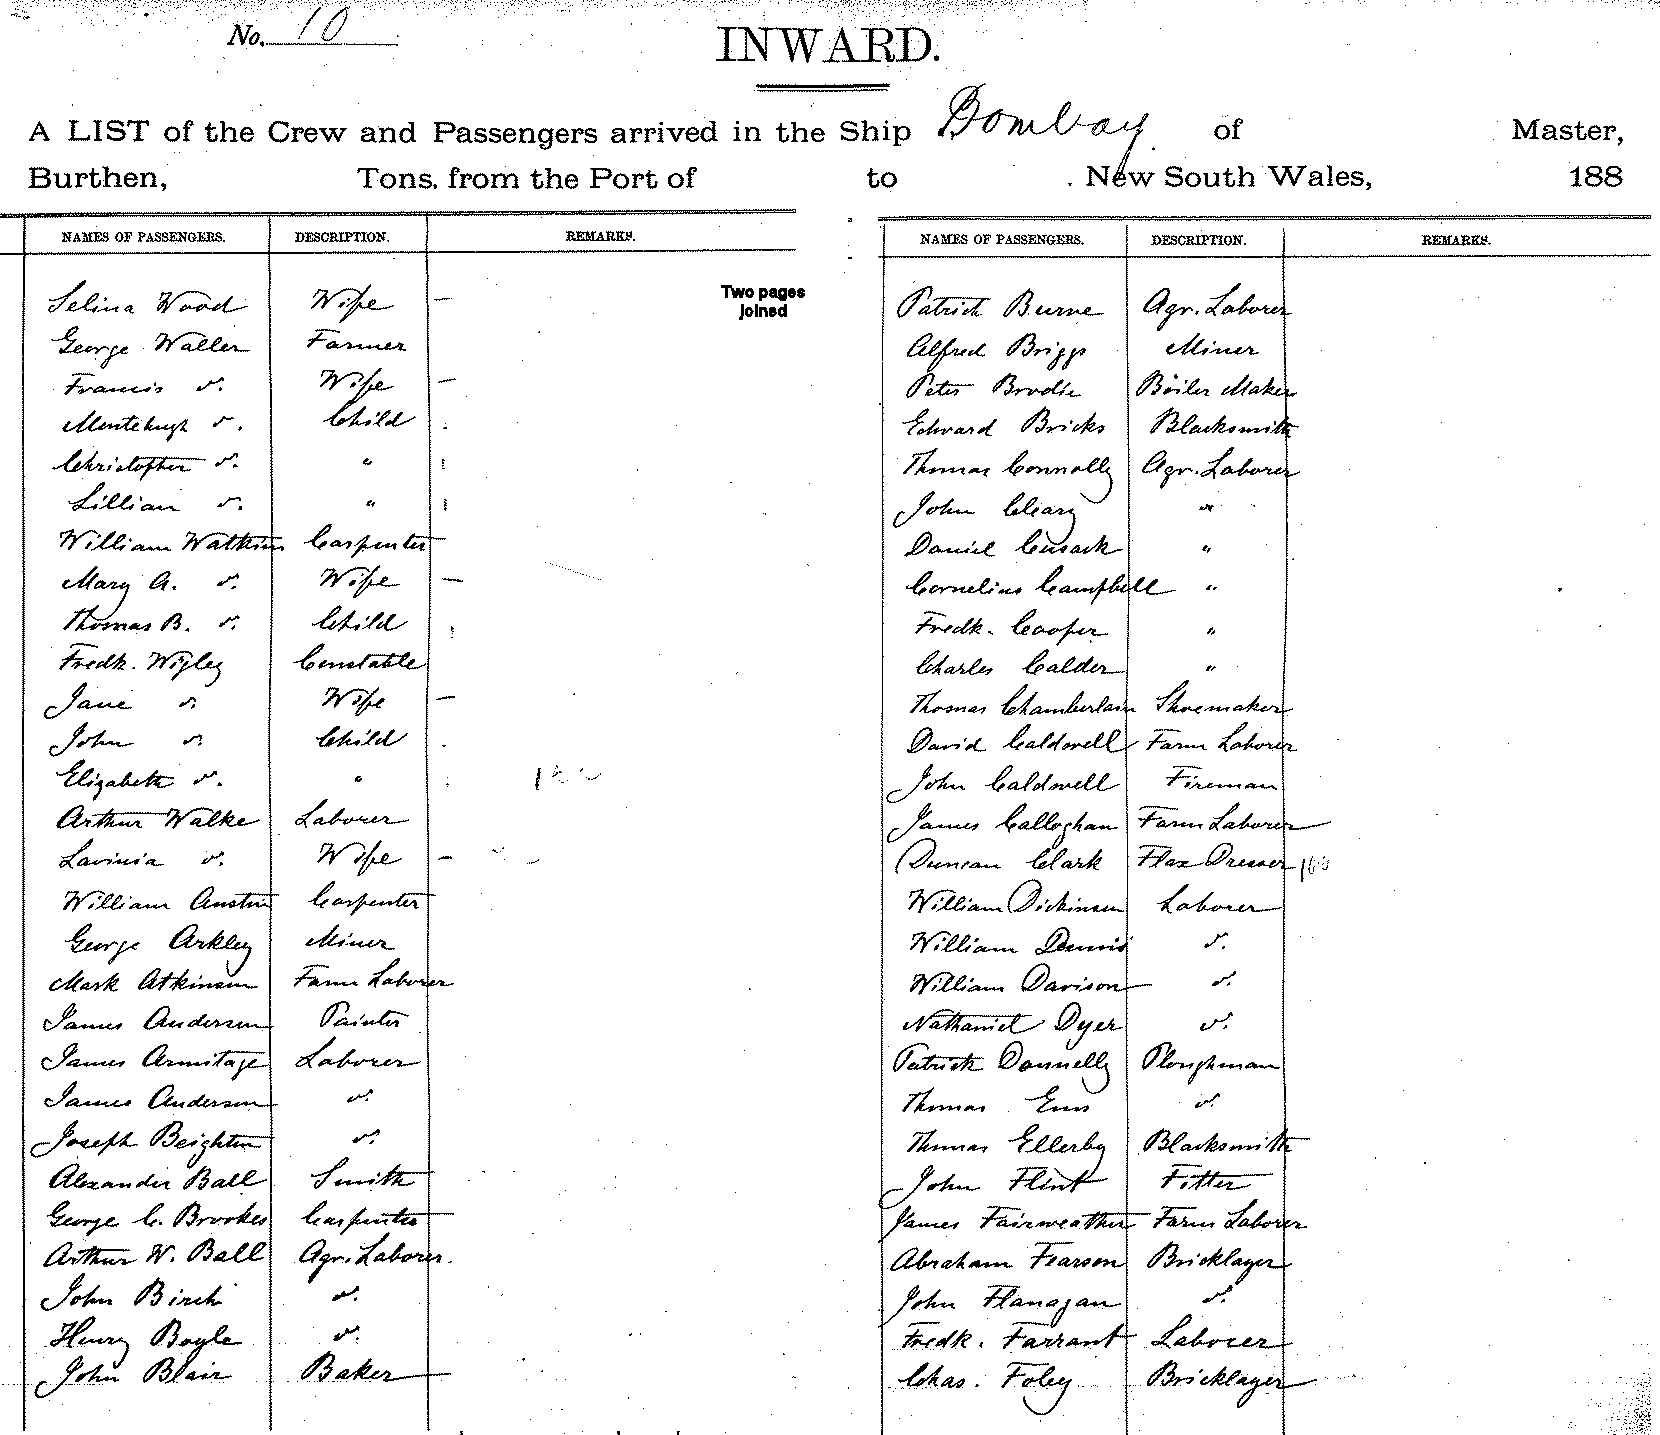 No. 10
INWARD.
A LIST of the Crew and Passengers arrived in the Ship Bombay of Master,
Burthen, Tons, from the Port of to New South Wales, 188
NAMES OF PASSENGERS. DESCRIPTION. REMARKS.
Selina Wood Wife —
George Waller Farmer
Francis do. Wife —
do. Child
Christopher do. "
Lillian do. "
William Watkins Carpenter
Mary A. do. Wife —
Thomas B. do. Child
Fredk. Wigley Constable
Jane do. Wife —
John do. Child
Elizabeth do. "
Arthur Walke Laborer
Lavinia do. Wife —
William Austin Carpenter
George Arkley Miner
Mark Atkinson Farm Laborer
James Anderson Painter
James Armitage Laborer
James Anderson do.
Joseph Beighton do.
Alexander Ball Smith
George C. Brookes Carpenter
Arthur W. Ball Agr. Laborer
John Birch do.
Henry Boyle do.
John Blair Baker
Two pages
joined
NAMES OF PASSENGERS. DESCRIPTION. REMARKS.
Patrick Burne Agr. Laborer
Alfred Briggs Miner
Peter Brodie Boiler Maker
Edward Bricks Blacksmith
Thomas Connolly Agr. Laborer
John Cleary "
Daniel Cusack "
Cornelius Campbell "
Fredk. Cooper "
Charles Calder "
Thomas Chamberlain Shoemaker
David Caldwell Farm Laborer
John Caldwell Fireman
James Calloghan Farm Laborer
Duncan Clark Flax Dresser
William Dickinson Laborer
William Dennis do.
William Davison do.
Nathaniel Dyer do.
Patrick Donnelly Ploughman
Thomas do.
Thomas Ellerby Blacksmith
John Flint Fitter
James Fairweather Farm Laborer
Abraham Fearson Bricklayer
John Flanagan do.
Fredk. Farrant Laborer
Chas. Foley Bricklayer